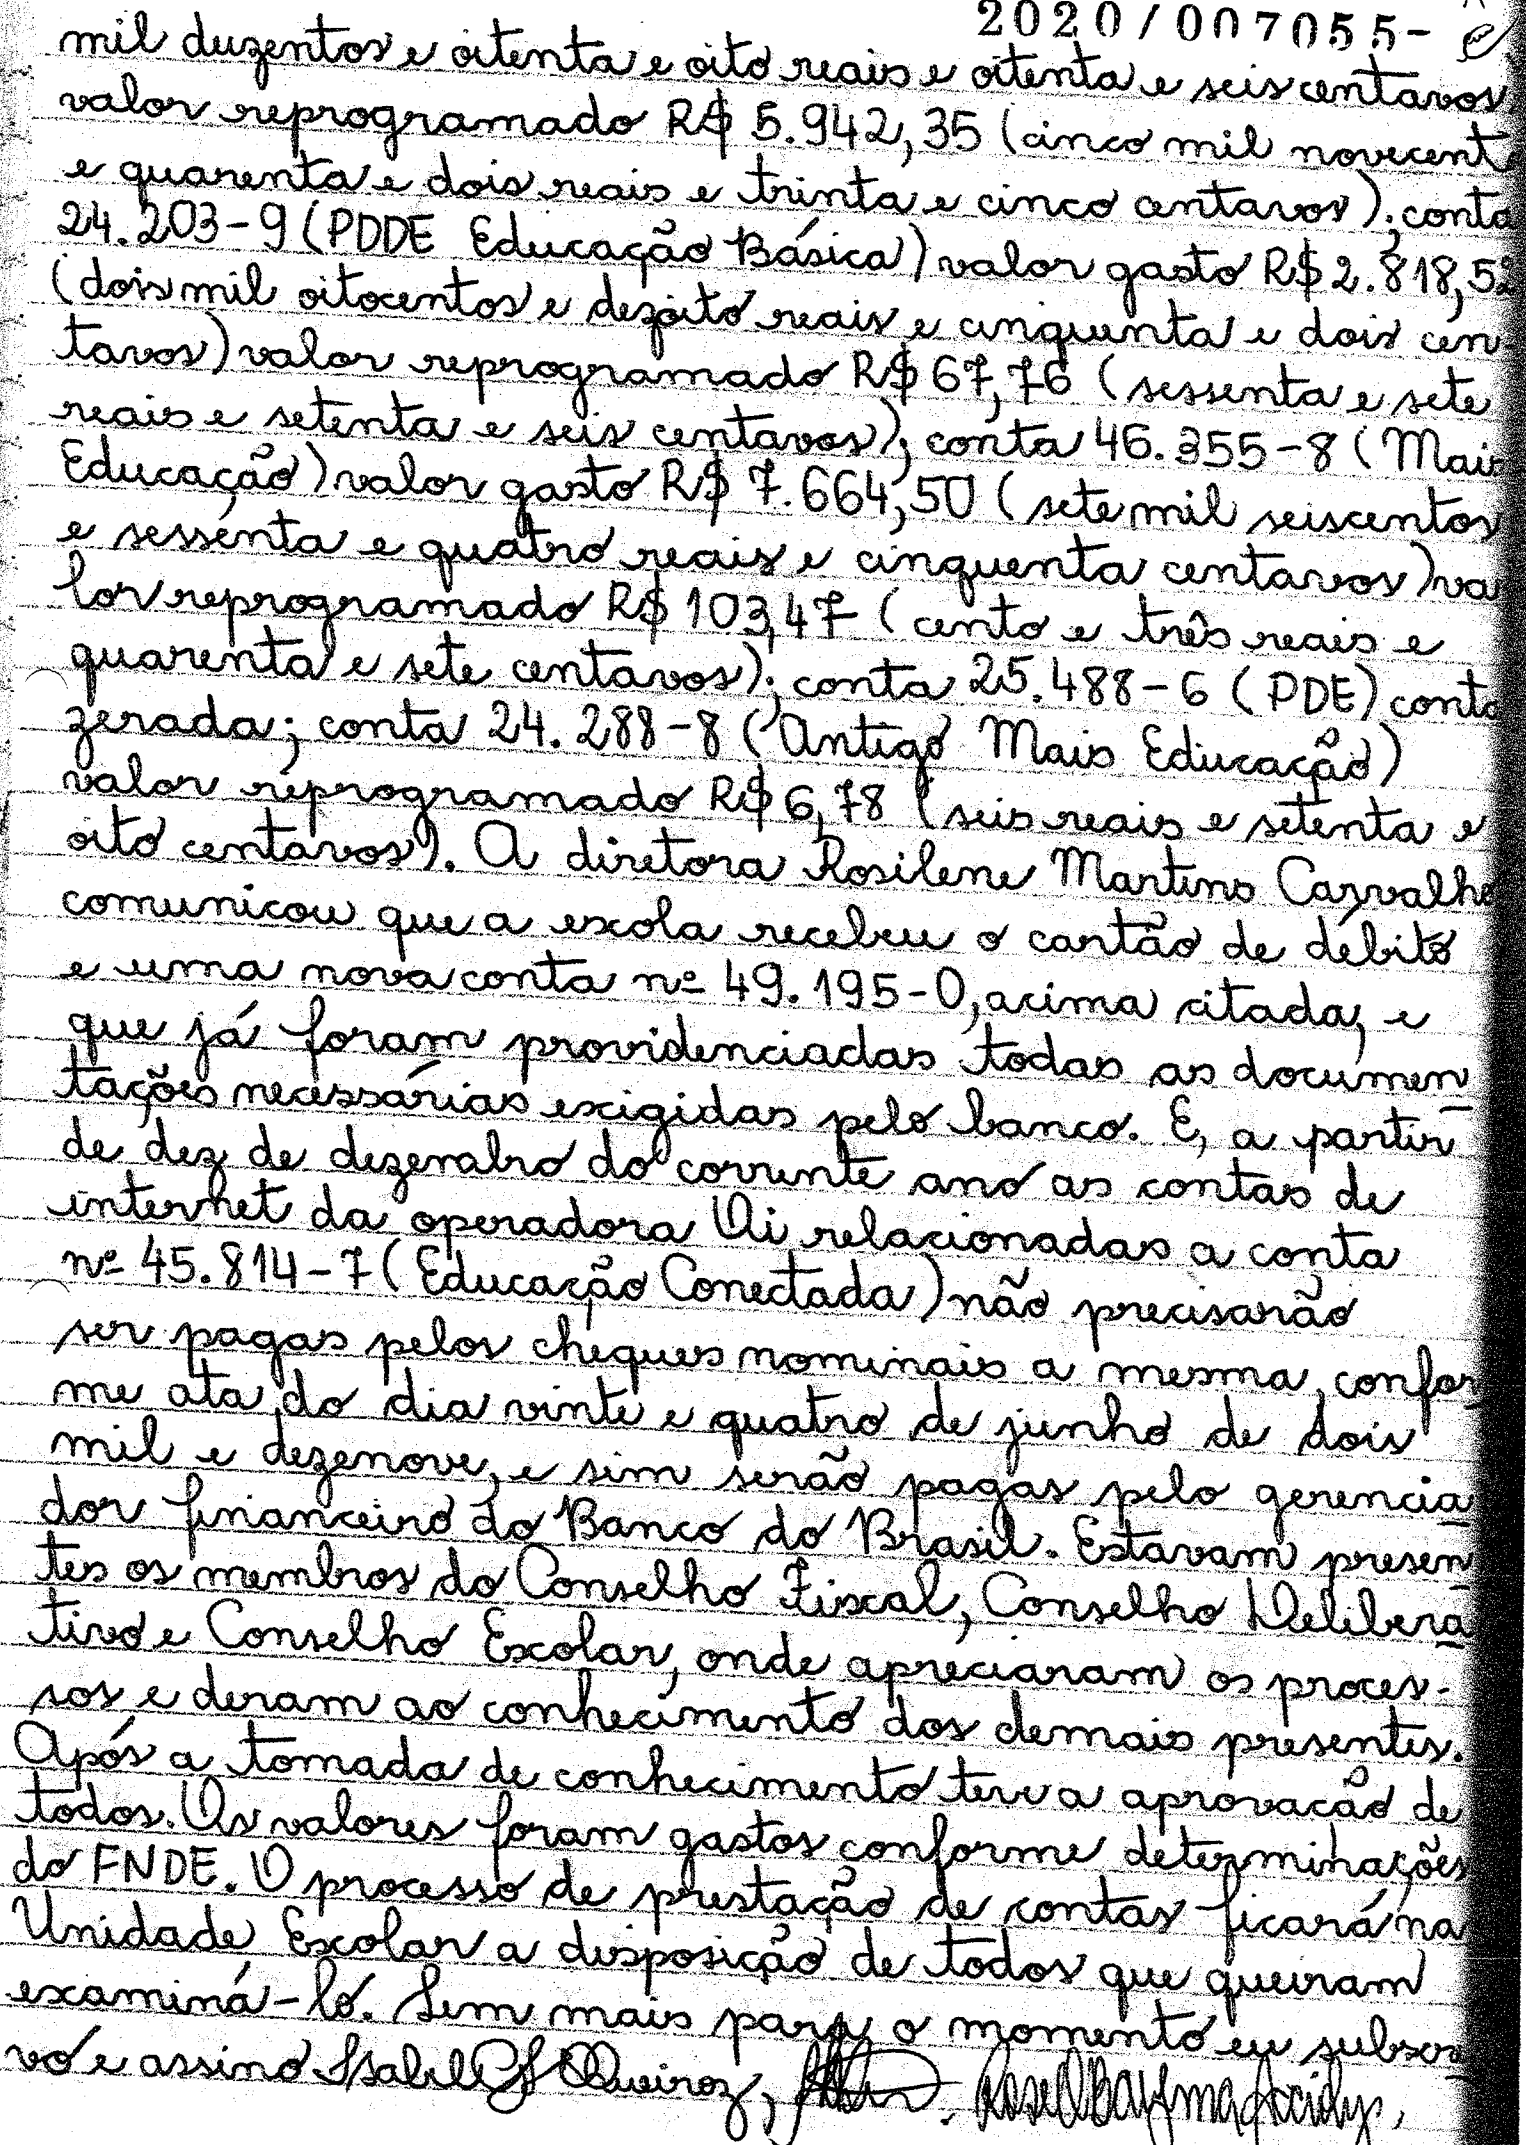 2020/007055-
mil duzentos e oitenta e oito reais e oitenta e seis centavos
valor reprogramado R$ 5.942,35 (cinco mil novecent
e quarenta e dois reais e trinta e cinco centavos); conta
24.203-9 (PDDE Educação Básica) valor gasto R$ 2.818,52
(dois mil oitocentos e dezoito reais e cinquenta e dois cen
tavos) valor reprogramado R$ 67,76 (sessenta e sete
reais e setenta e seis centavos); conta 46.355-8 (Mais
Educação) valor gasto R$ 7.664,50 (sete mil seiscentos
e sessenta e quatro reais e cinquenta centavos) va
lor reprogramado R$ 103,47 (cento e três reais e
quarenta e sete centavos); conta 25.488-6 (PDE) conta
zerada; conta 24.288-8 (Antigo Mais Educação)
valor reprogramado R$ 6,78 (seis reais e setenta e
oito centavos). A diretora Rosilene Martins Carvalho
comunicou que a escola recebeu o cartão de débito
e uma nova conta nº 49.195-0, acima citada, e
que já foram providenciadas todas as documen
tações necessárias exigidas pelo banco. E, a partir
de dez de dezembro do corrente ano as contas de
internet da operadora Oi relacionadas a conta
nº 45.814-7 (Educação Conectada) não precisarão
ser pagas pelos cheques nominais a mesma, confor
me ata do dia vinte e quatro de junho de dois
mil e dezenove, e sim serão pagas pelo gerencia
dor financeiro do Banco do Brasil. Estavam presen
tes os membros do Conselho Fiscal, Conselho Delibera
tivo e Conselho Escolar, onde apreciaram os proces-
sos e deram ao conhecimento dos demais presentes.
Após a tomada de conhecimento teve a aprovação de
todos. Os valores foram gastos conforme determinações
do FNDE. O processo de prestação de contas ficará na
Unidade Escolar a disposição de todos que queiram
examiná-lo. Sem mais para o momento eu subscre
vo e assino Isabel Queiroz,